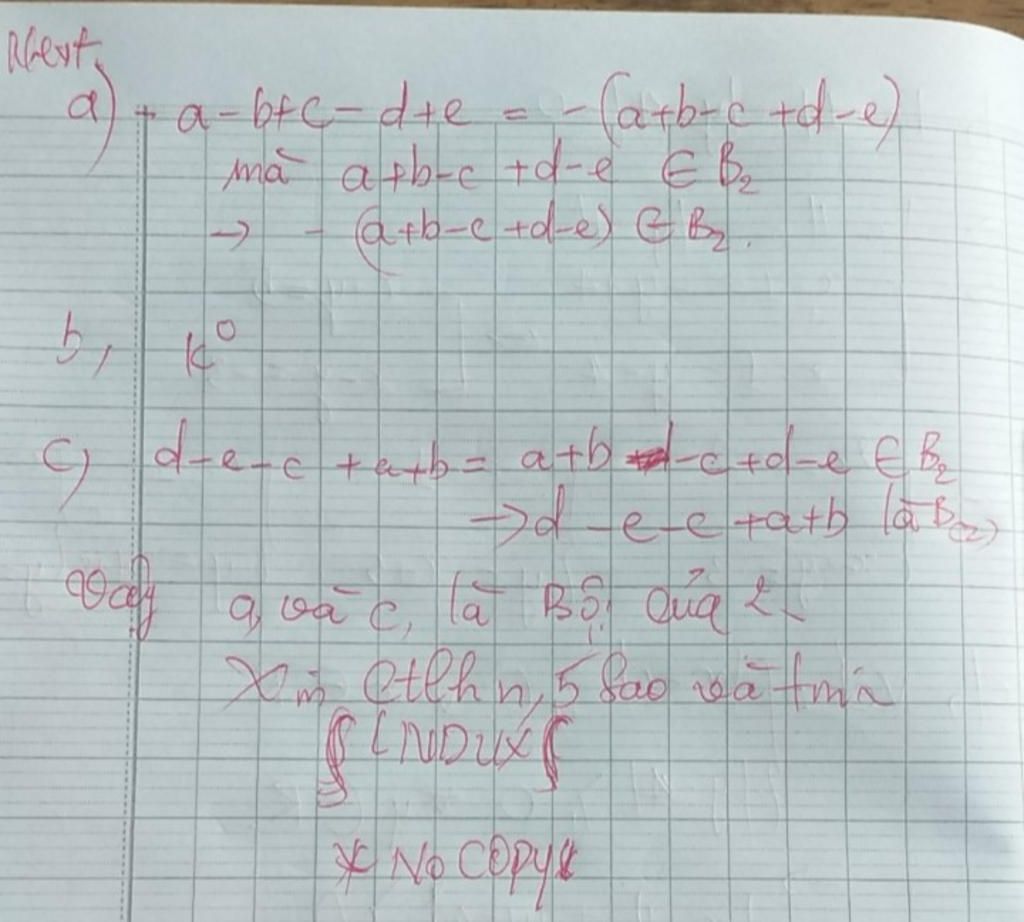 a) - a-b+c-d+e = -(a+b-c+d-e)
mà a+b-c+d-e ∈ B₂
→ - (a+b-c+d-e) ∈ B₂.
b, k⁰
c) d-e-c+a+b = a+b-c+d-e ∈ B₂
→ d-e-c+a+b là B₍₂₎
Vậy a, và c, là Bội của 2
Xin ctlhn, 5 sao và tmin
LNDUX
* NO COPY *